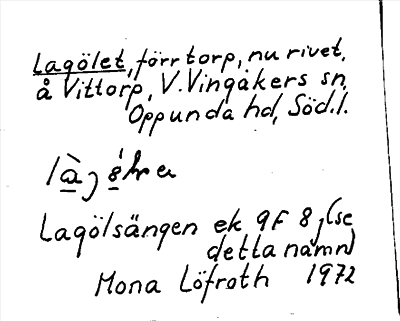 Lagölet, förr torp, nu rivet,
å Vittorp, V. Vingåkers sn,
Oppunda hd, Söd.l.
Lagölsängen ek 9F 8j (se
detta namn)
Mona Löfroth 1972